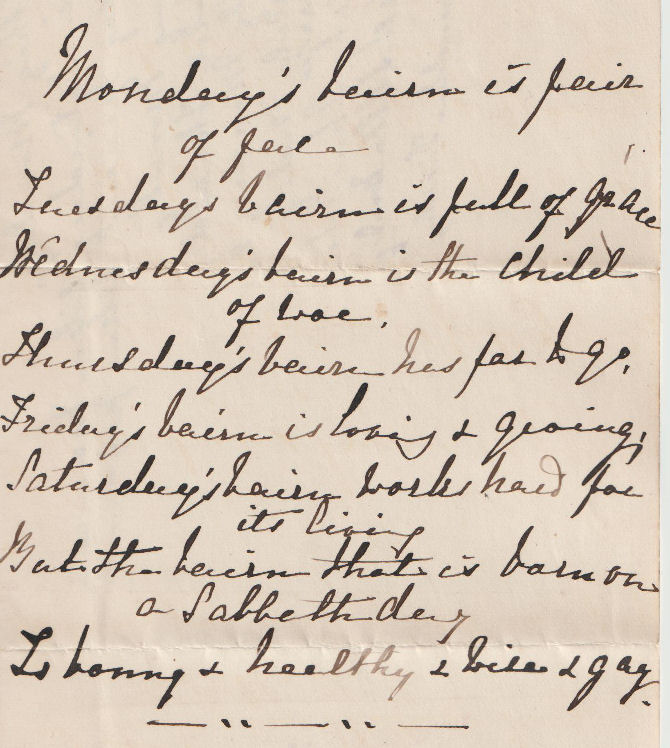 Monday's bairn is fair
of face
Tuesdays bairn is full of grace
Wednesday's bairn is the child
of woe,
Thursday's bairn has far to go,
Friday's bairn is loving & giving,
Saturday's bairn works hard for
its living
But the bairn that is born on
a Sabbath day
Is bonny & healthy & wise & gay.